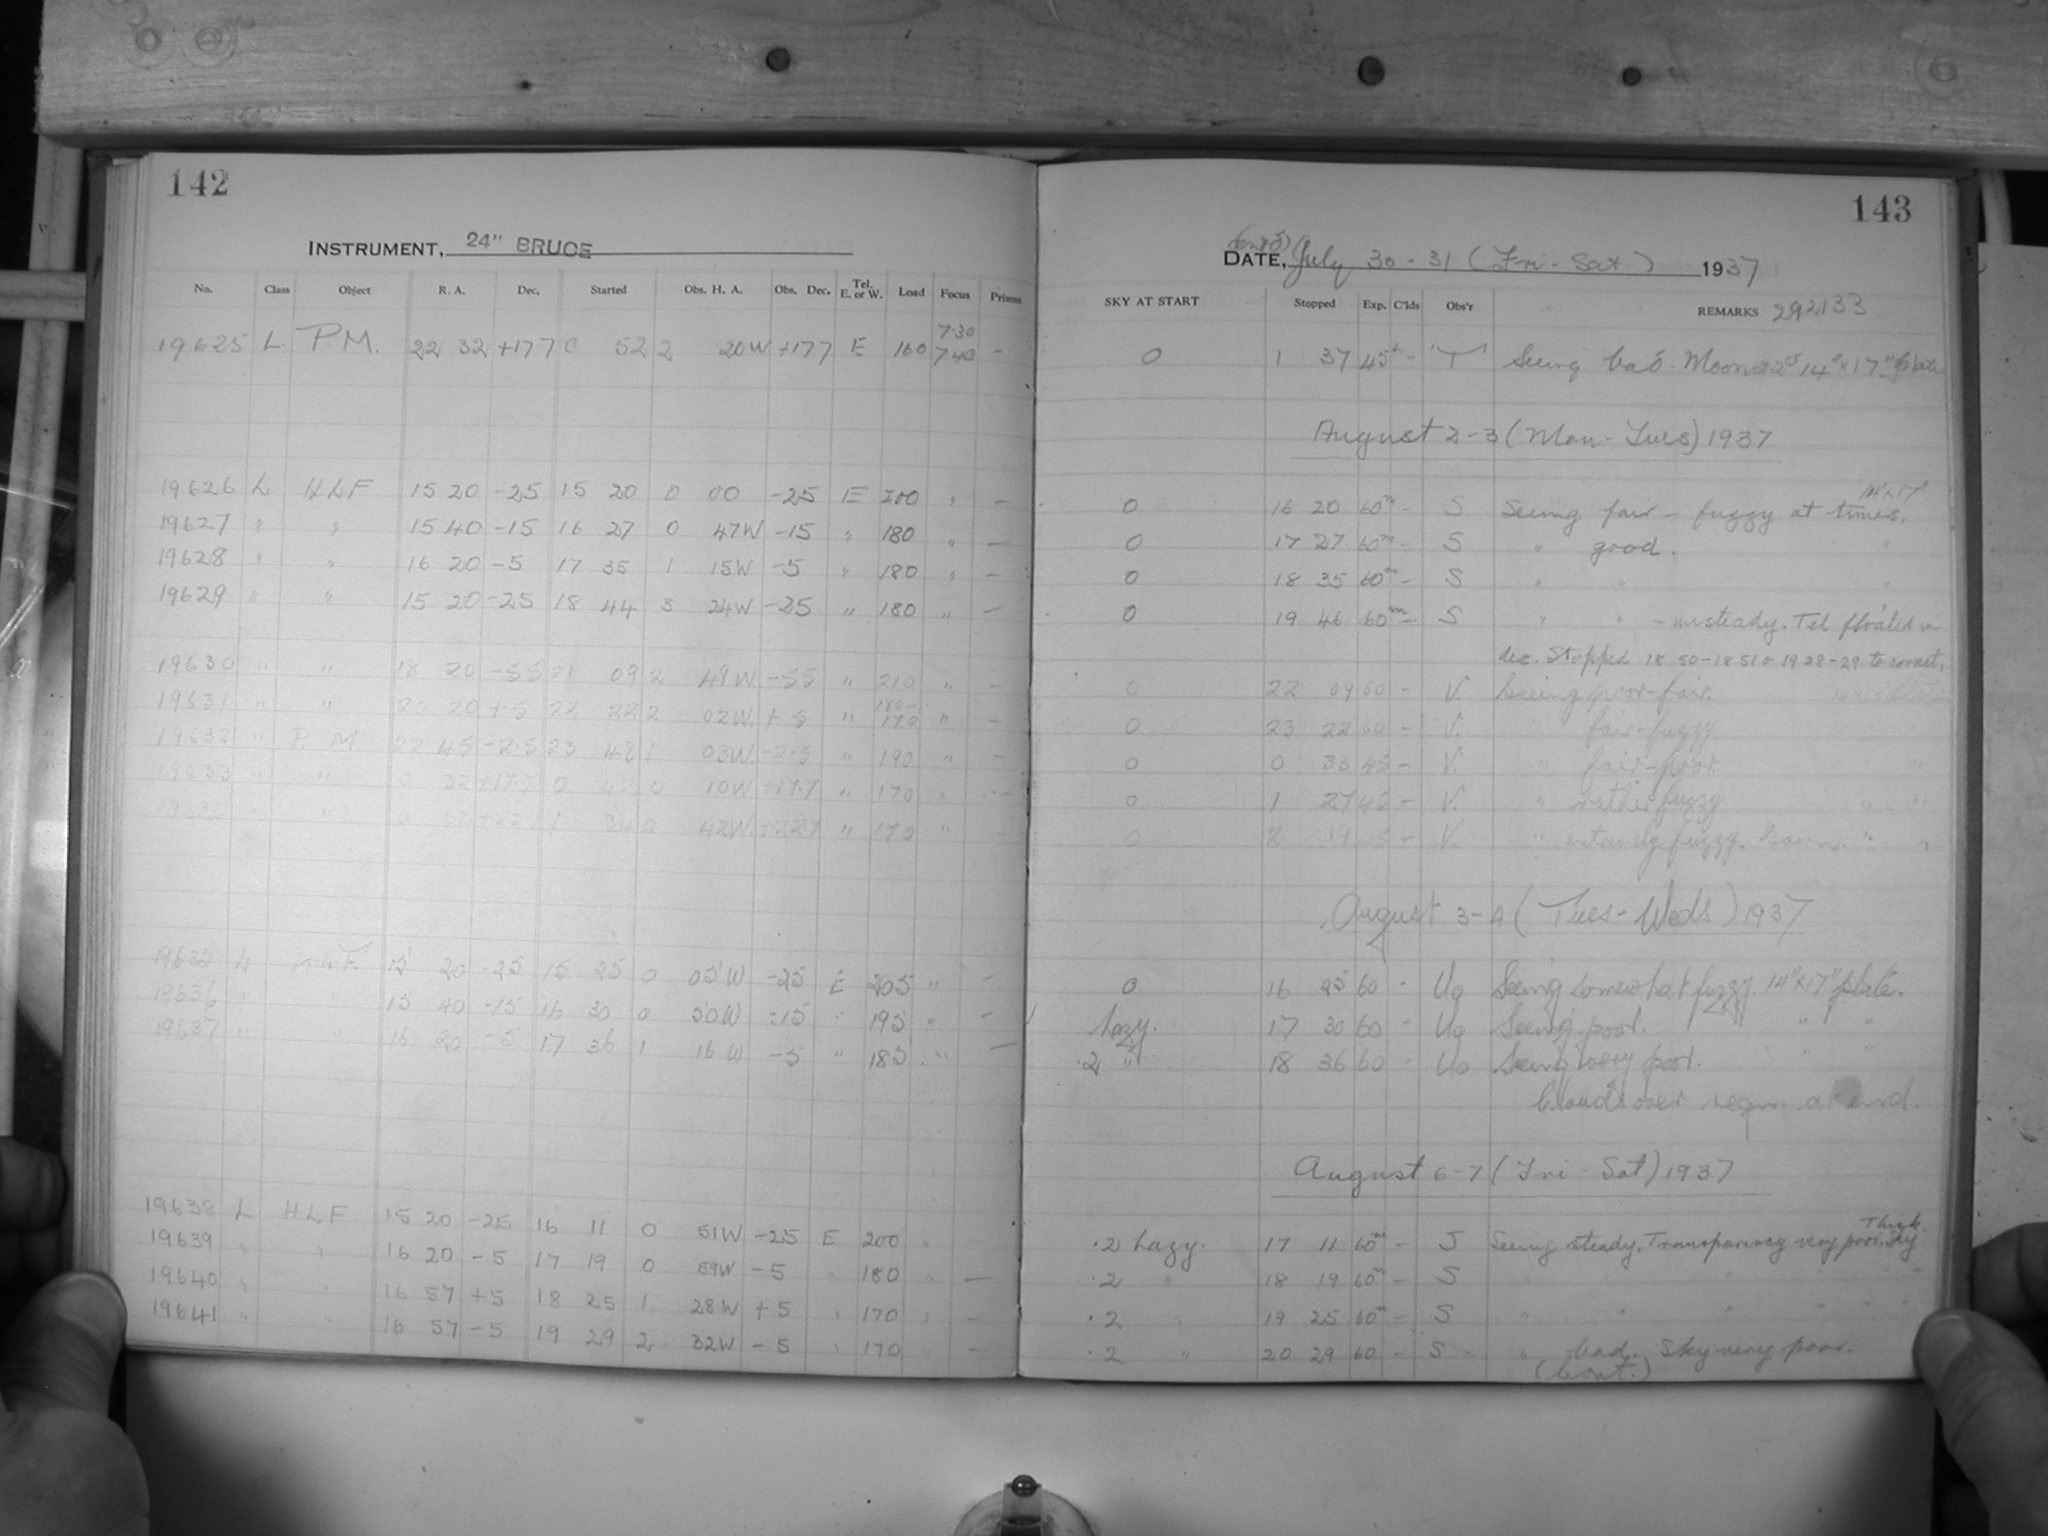 142
INSTRUMENT, 24" BRUCE
No. Class Object R. A. Dec. Started Obs. H. A. Obs. Dec. Tel. E. or W. Load Focus Prisms
19625 L. P.M. 22 32 +177 0 52 2 20W +177 E 160 7.30 7.40 -
19626 L HLF 15 20 -25 15 20 0 00 -25 E 200 " -
19627 " " 15 40 -15 16 27 0 47W -15 " 180 " -
19628 " " 16 20 -5 17 35 1 15W -5 " 180 " -
19629 " " 15 20 -25 18 44 3 24W -25 " 180 " -
19630 " " 18 20 -55 21 09 2 49W -55 " 210 " -
19631 " " 20 20 +5 22 22 2 02W. +5 " 180- 170 " -
19632 " P. M. 22 45 -2.5 23 48 1 03W. -2.5 " 190 " -
19633 " " 0 32 +17.7 0 42 0 10W +17.7 " 170 " -
" 1 34 0 42W. +22.7 " 170 "
19635 L HLF. 15 20 -25 15 25 0 05W -25 E 205 " -
19636 15 40 -15 16 30 0 50W -15 " 195 " -
19637 " 16 20 -5 17 36 1 16W -5 " 185 " -
19638 L HLF 15 20 -25 16 11 0 51W -25 E 200 " -
19639 " " 16 20 -5 17 19 0 59W -5 " 180 " -
19640 " " 16 57 +5 18 25 1 28W +5 " 170 " -
19641 " " 16 57 -5 19 29 2 32W -5 " 170 " -
143
(cont'd)
DATE, July 30 - 31 (Fri - Sat) 1937
SKY AT START Stopped Exp. C'lds Obs'r REMARKS 292133
0 1 37 45m - "T" Seeing bad. Moon 22d 14"x17" plate
August 2-3 (Mon - Tues) 1937
14"x17"
0 16 20 60m - S Seeing fair - fuzzy at times.
0 17 27 60m - S " good. "
0 18 35 60m - S " " "
0 19 46 60m - S " " - unsteady. Tel floated in
dec. Stopped 18 50-18 51 & 19 28-29 to correct.
0 22 09 60 - V. Seeing poor-fair.
0 23 22 60 - V. " fair-fuzzy.
0 0 33 45 - V. " fair-poor
0 1 27 45 - V. " rather fuzzy " "
0 2 19 45 - V. " extremely fuzzy. " "
August 3-4 (Tues - Weds) 1937
0 16 25 60 - Uo Seeing somewhat fuzzy. 14"x17" plate.
hazy. 17 30 60 - Uo Seeing poor. " "
.2 " 18 36 60 - Uo Seeing very poor. " "
Clouds over region at end.
August 6-7 (Fri - Sat) 1937
.2 hazy. 17 11 60m - S Seeing steady. Transparency very poor. Thick sky
.2 " 18 19 60m - S " " " "
.2 " 19 25 60m - S " " " "
.2 " 20 29 60 - S " bad. Sky very poor.
(Cont.)